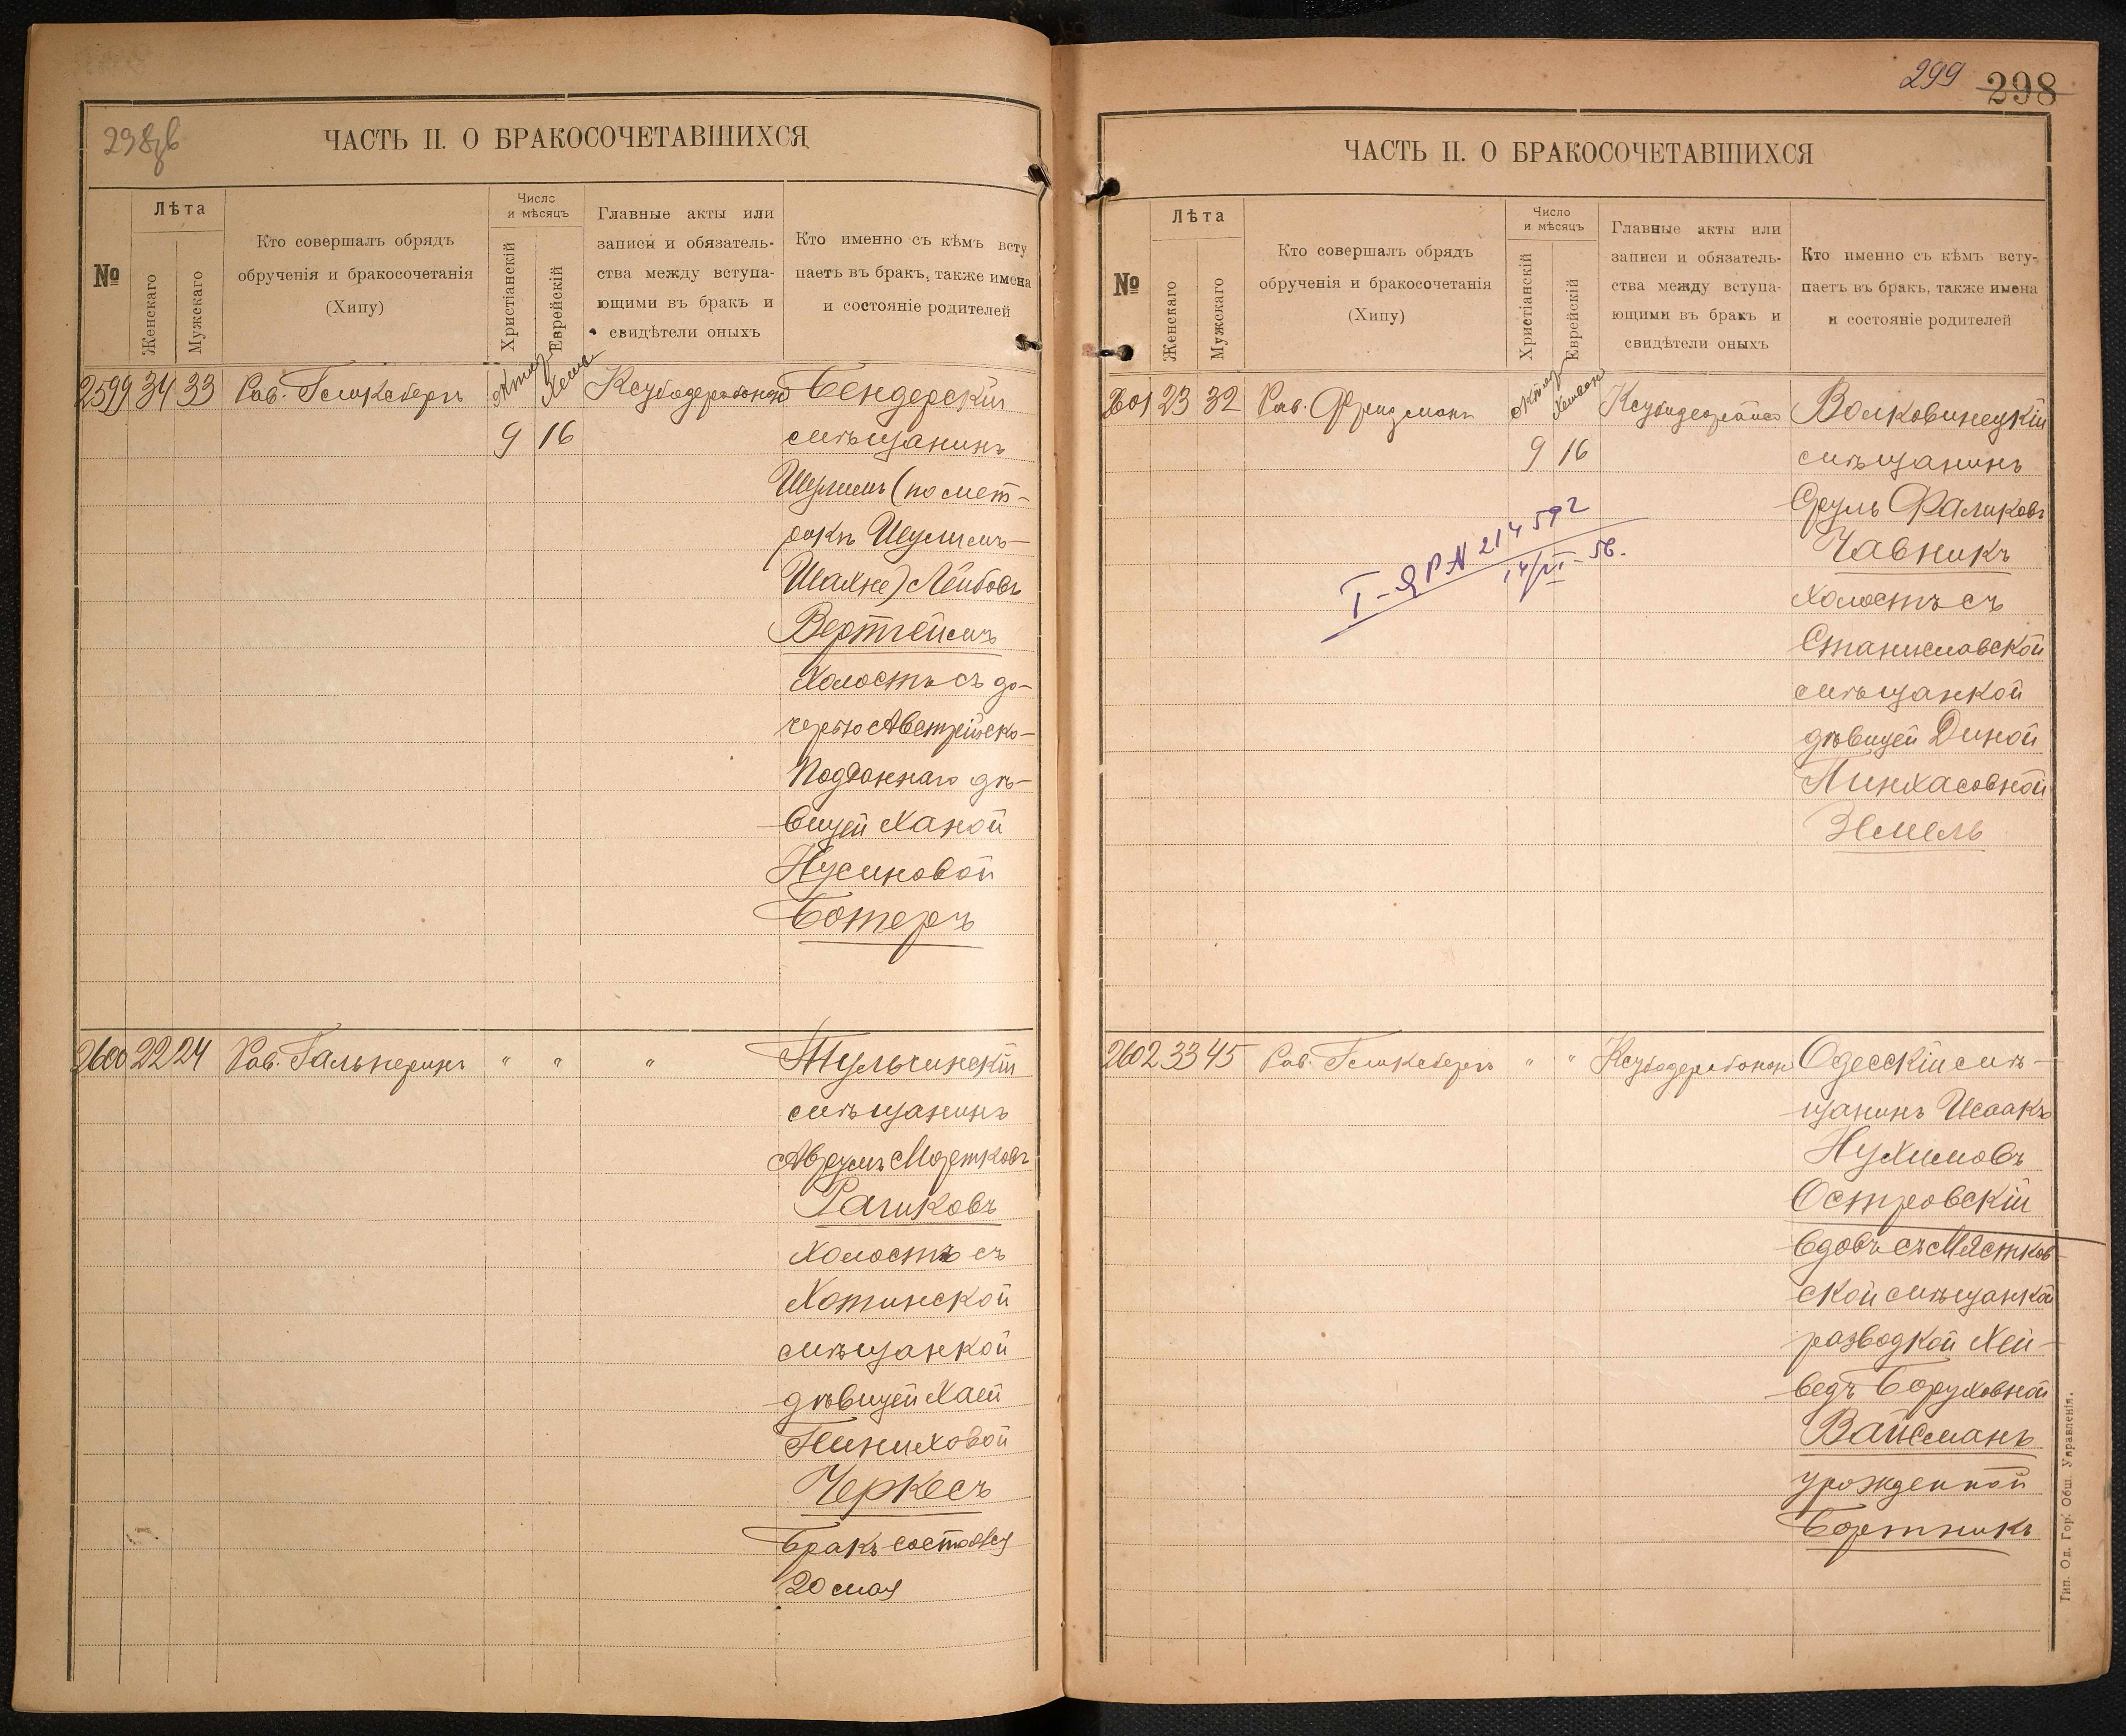 ЧАСТЬ II. О БРАКОСОЧЕТАВШИХСЯ
№
Лѣта
Женскаго
Мужескаго
Кто совершалъ обрядъ
обрученія и бракосочетанія
(Хипу)
Число
и мѣсяцъ
Христіанскій
Еврейскій
Главные акты или
записи и обязатель-
ства между вступа-
ющими въ бракъ и
свидѣтели оныхъ
Кто именно съ кѣмъ всту
паетъ въ бракъ, также имена
и состояніе родителей
2599 34 33 Рав. Гемкебергъ
9 16
Бендерскій
мѣщанинъ
Шулимъ (по мет-
рикѣ Шулимъ-
Шахне) Лейбовъ
Вертгеймъ
холостъ съ до-
черью Австрійско-
Подданнаго дѣ-
вицей Ханой
Нусиновой
Ботеръ
2600 22 24 Рав. Гальперинъ " " "
Тульчинскій
мѣщанинъ
Аврумъ Мортковъ
Рашковъ
холостъ съ
Хотинской
мѣщанкой
дѣвицей Хаей
Пиниховой
Черкесъ
Бракъ состоялся
20 мая
299 298
ЧАСТЬ II. О БРАКОСОЧЕТАВШИХСЯ
№
Лѣта
Женскаго
Мужскаго
Кто совершалъ обрядъ
обрученія и бракосочетанія
(Хипу)
Число
и мѣсяцъ
Христіанскій
Еврейскій
Главные акты или
записи и обязатель-
ства между вступа-
ющими въ бракъ и
свидѣтели оныхъ
Кто именно съ кѣмъ всту-
паетъ въ бракъ, также имена
и состояніе родителей
2601 23 32 Рав. Фридманъ
9 16
Волковинецкій
мѣщанинъ
Сруль Фаликовъ
Чавникъ
холостъ съ
Станиславской
мѣщанкой
дѣвицей Диной
Пинхасовной
Земель
2602 33 45 Рав. Гемкебергъ " "
Одесскій мѣ-
щанинъ Исаакъ
Нухимовъ
Островскій
вдовъ съ Мястков-
ской мѣщанкой
разводкой Хей-
ведъ Боруховной
Вайсманъ
урожденной
Бортникъ
Тип. Од. Гор. Общ. Управленія.